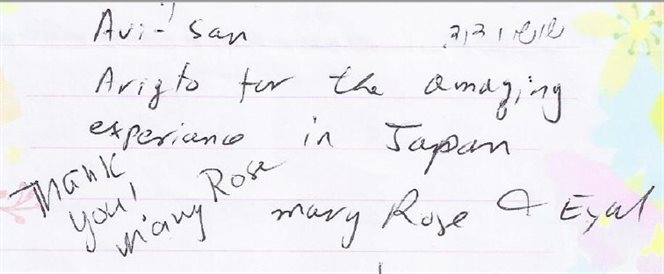 Avi-San
Arigto for the amazing
experiance in Japan
mary Rose & Eyal
Thank
you!
Mary Rose